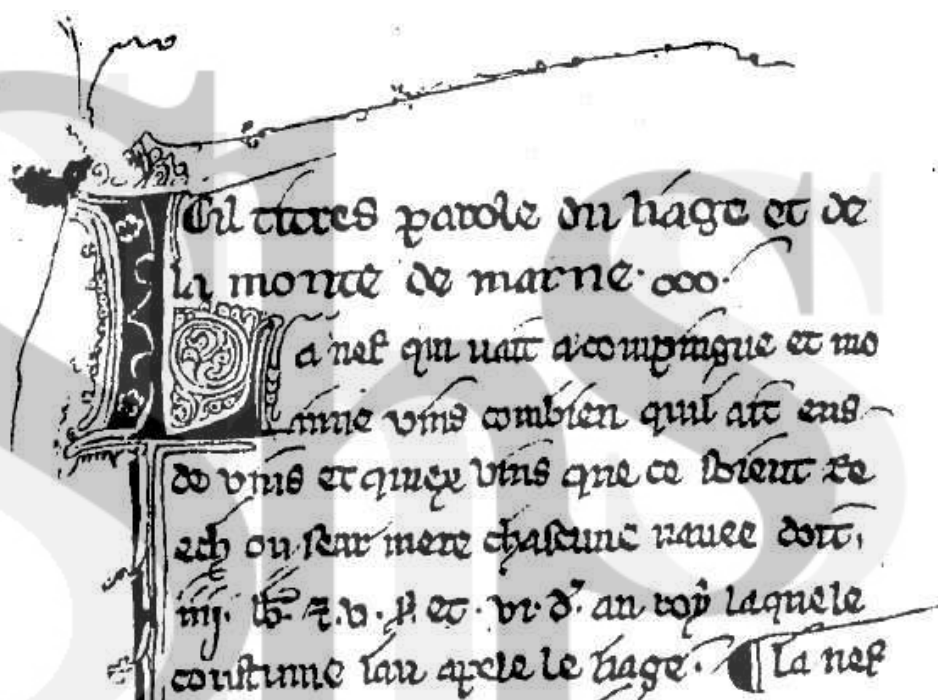 Cil titres parole du liage et de
la monte de marne. ooo.
La nef qui vait a compingne et me
inne vins combien quil ait ens
de vins et quiex vins que ce soient se
ech ou mere chascune navee doit
iiij. lb. z. v. s. et. vi. d. au roy laquele
coustume lan apele le liage. la nef